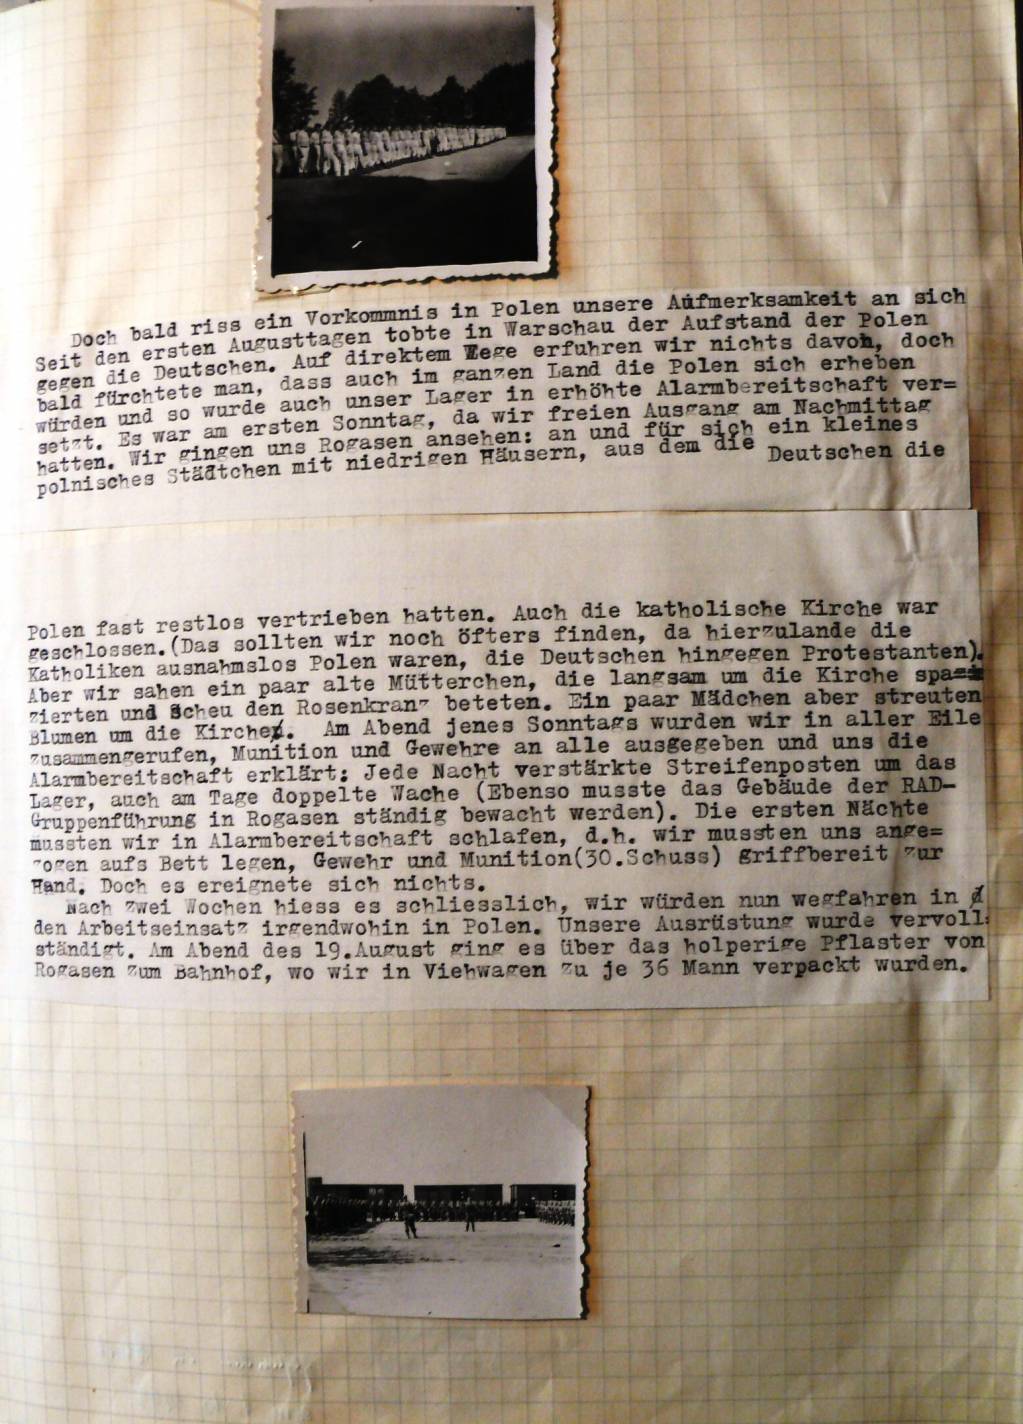 Doch bald riss ein Vorkommnis in Polen unsere Aufmerksamkeit an sich
Seit den ersten Augusttagen tobte in Warschau der Aufstand der Polen
gegen die Deutschen. Auf direktem Wege erfuhren wir nichts davon, doch
bald fürchtete man, dass auch im ganzen Land die Polen sich erheben
würden und so wurde auch unser Lager in erhöhte Alarmbereitschaft ver=
setzt. Es war am ersten Sonntag, da wir freien Ausgang am Nachmittag
hatten. Wir gingen uns Rogasen ansehen: an und für sich ein kleines
polnisches Städtchen mit niedrigen Häusern, aus dem die Deutschen die
Polen fast restlos vertrieben hatten. Auch die katholische Kirche war
geschlossen.(Das sollten wir noch öfters finden, da hierzulande die
Katholiken ausnahmslos Polen waren, die Deutschen hingegen Protestanten).
Aber wir sahen ein paar alte Mütterchen, die langsam um die Kirche spa==
zierten und scheu den Rosenkranz beteten. Ein paar Mädchen aber streuten
Blumen um die Kirche. Am Abend jenes Sonntags wurden wir in aller Eile
zusammengerufen, Munition und Gewehre an alle ausgegeben und uns die
Alarmbereitschaft erklärt: Jede Nacht verstärkte Streifenposten um das
Lager, auch am Tage doppelte Wache (Ebenso musste das Gebäude der RAD-
Gruppenführung in Rogasen ständig bewacht werden). Die ersten Nächte
mussten wir in Alarmbereitschaft schlafen, d.h. wir mussten uns ange=
zogen aufs Bett legen, Gewehr und Munition(30.Schuss) griffbereit zur
Hand. Doch es ereignete sich nichts.
Nach zwei Wochen hiess es schliesslich, wir würden nun wegfahren in
den Arbeitseinsatz irgendwohin in Polen. Unsere Ausrüstung wurde vervoll=
ständigt. Am Abend des 19.August ging es über das holperige Pflaster von
Rogasen zum Bahnhof, wo wir in Viehwagen zu je 36 Mann verpackt wurden.